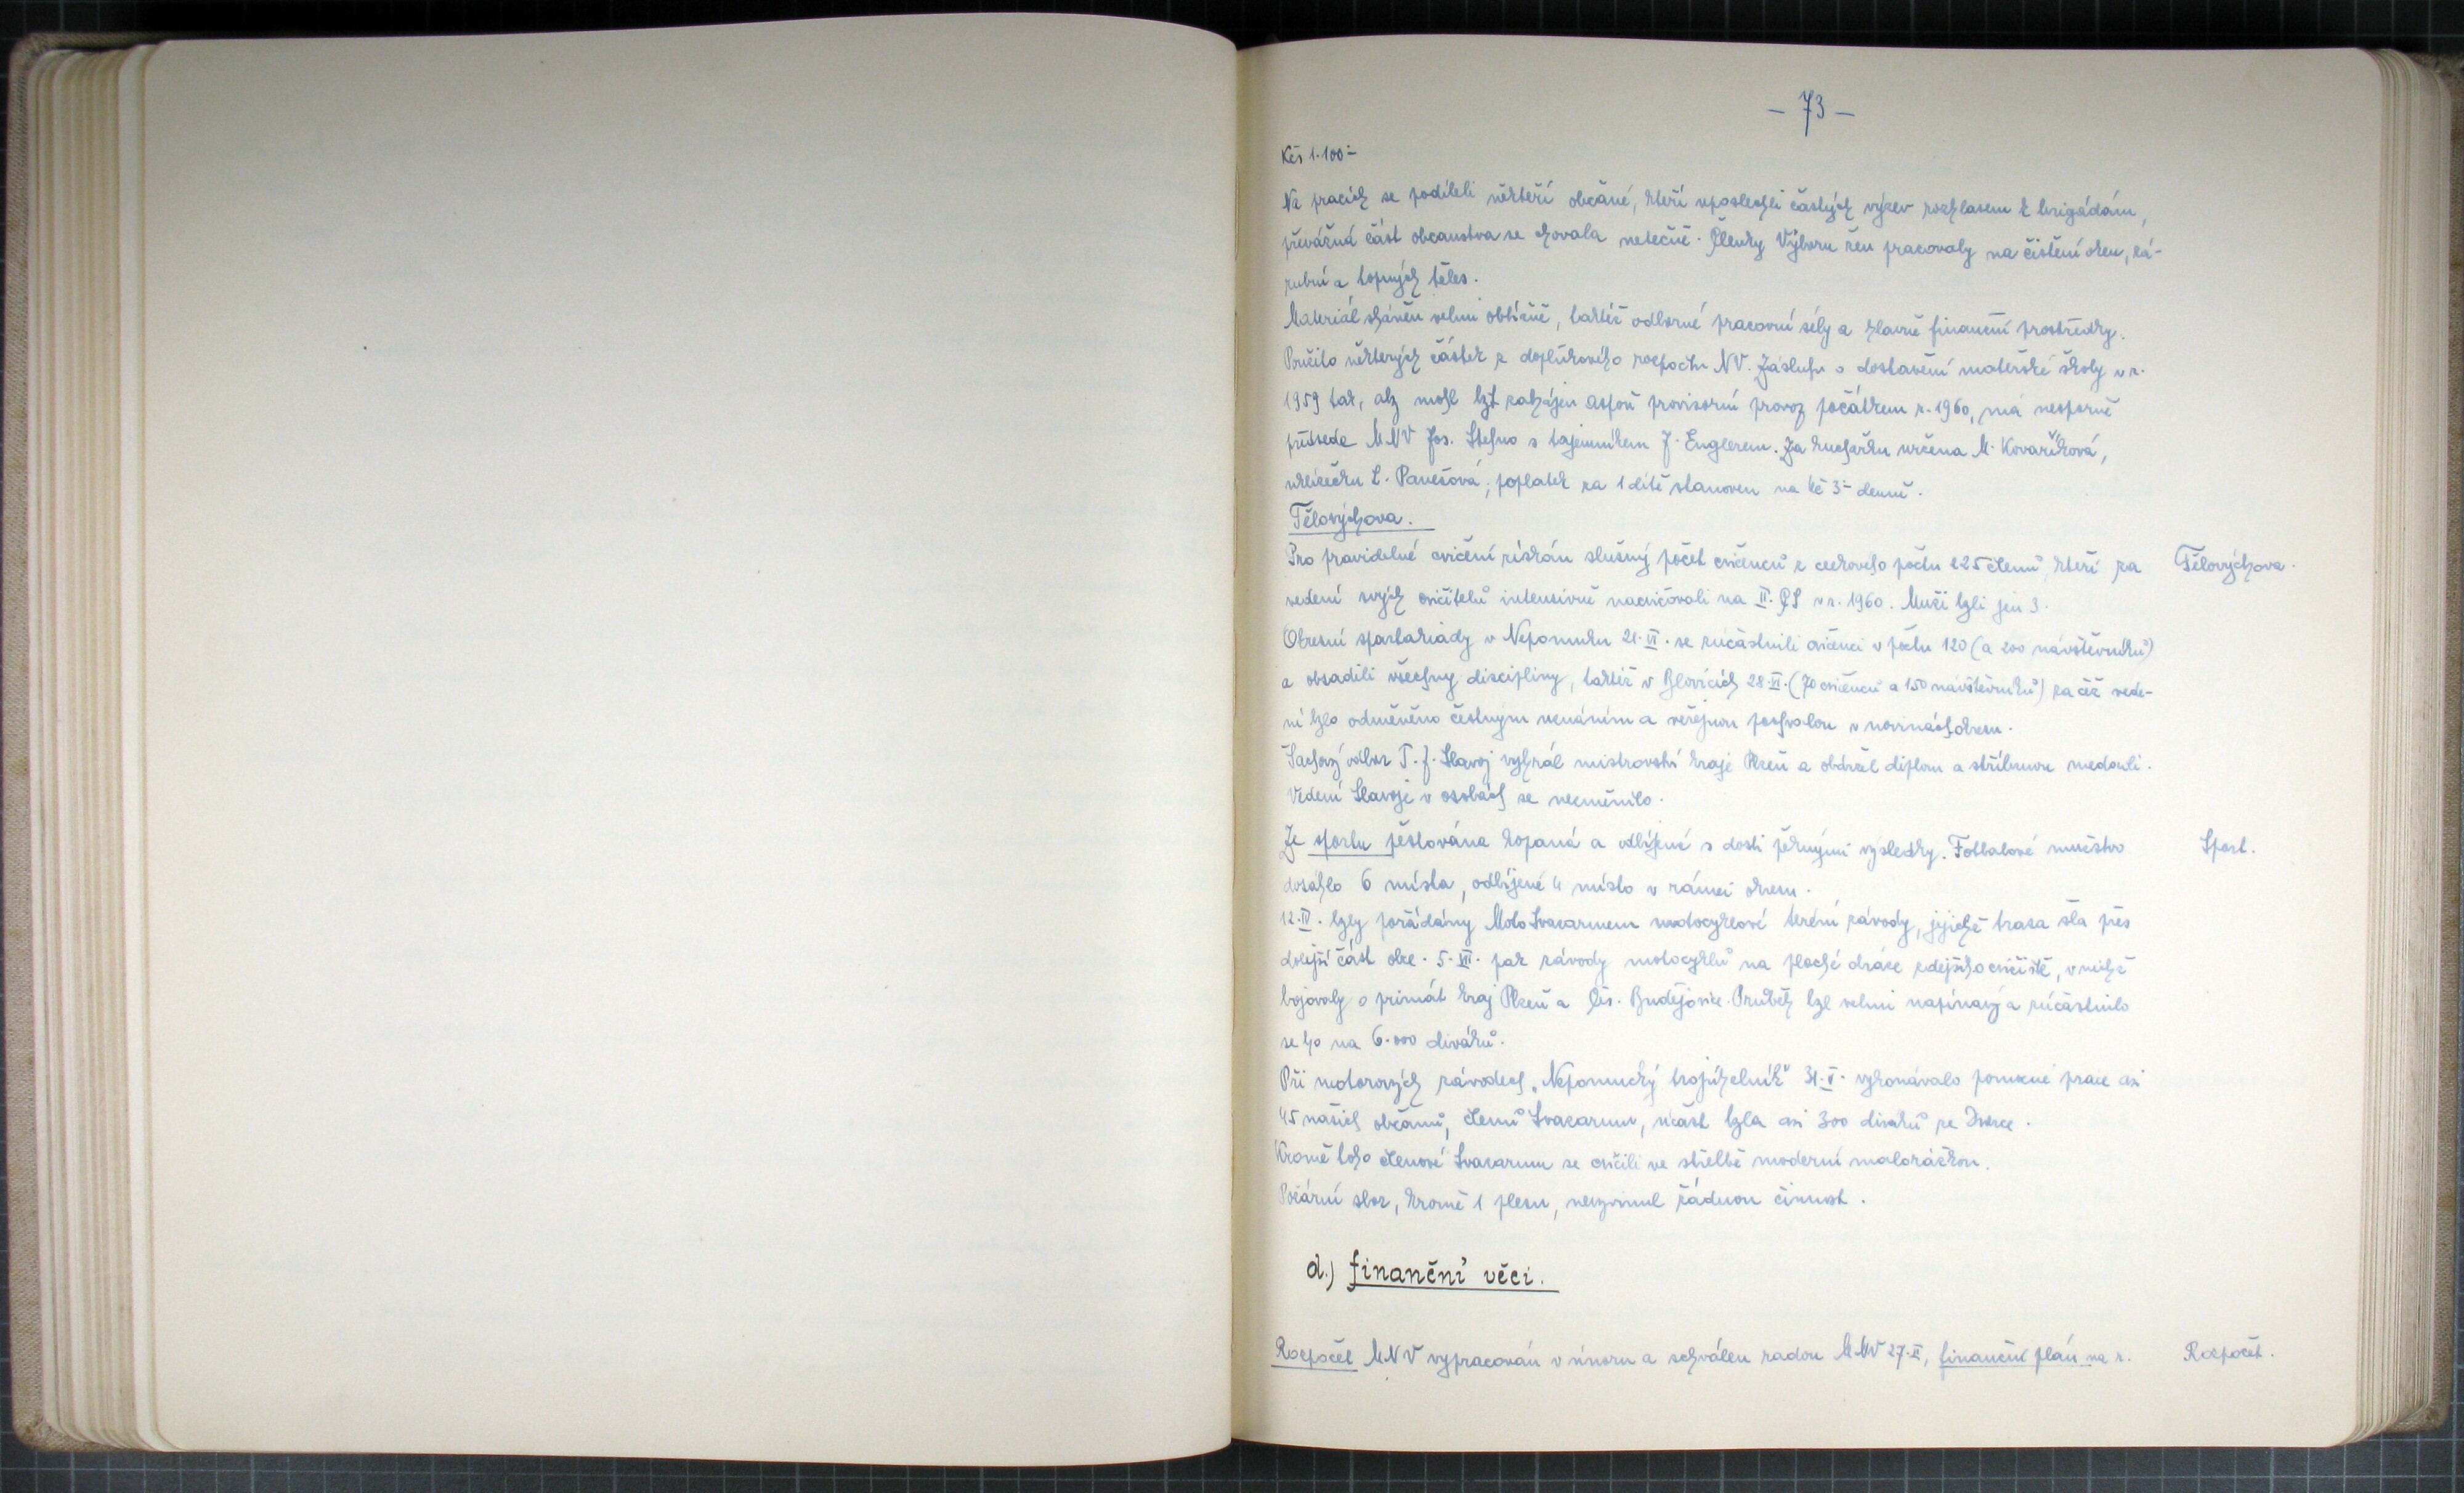 — 73 —
Kčs 1.100.-
Na pracích se podíleli někteří občané, kteří uposlechli častých výzev rozhlasem k brigádám,
převážná část občanstva se chovala netečně. Členky Výboru žen pracovaly na čištění oken, zá-
rubní a topných těles.
Materiál sháněn velmi obtížně, taktéž odborné pracovní síly a hlavně finanční prostředky.
Použito některých částek z doplňkového rozpočtu NV. Zásluhu o dostavění mateřské školy v r.
1959 tak, aby mohl být zahájen aspoň provisorní provoz počátkem r. 1960, má nesporně
předseda MNV Jos. Stehno s tajemníkem J. Englerem. Za kuchařku určena M. Kovaříková,
uklizečku L. Pavešová; poplatek za 1 dítě stanoven na Kč 3.- denně.
Tělovýchova.
Pro pravidelné cvičení získán slušný počet cvičenců z celkového počtu 225 členů, kteří za
Tělovýchova.
vedení svých cvičitelů intensivně nacvičovali na II. CS v r. 1960. Muži byli jen 3.
Okresní spartakiády v Nepomuku 21.VI. se zúčastnili cvičenci v počtu 120 (a 200 návštěvníků)
a obsadili všechny disciplíny, taktéž v Blovicích 28.VI. (70 cvičenců a 150 návštěvníků) za čež vede-
ní bylo odměněno čestným uznáním a veřejnou pochvalou v novinách okresu.
Šachový odbor T.J. Slavoj vyhrál mistrovství kraje Plzeň a obdržel diplom a stříbrnou medaili.
Vedení Slavoje v osobách se nezměnilo.
Ze sportu pěstována kopaná a odbíjená s dosti pěknými výsledky. Fotbalové mužstvo
Sport.
dosáhlo 6 místa, odbíjené 4 místo v rámci okresu.
12.IV. byly pořádány MotoSvazarmem motocyklové terénní závody, jejichž trasa šla přes
dolejší část obce. 5.VII. pak závody motocyklů na ploché dráze zdejšího cvičiště, v nichž
bojovaly o primát kraj Plzeň a Čes. Budějovice. Průběh byl velmi napínavý a zúčastnilo
se ho na 6.000 diváků.
Při motorových závodech „Nepomucký trojúhelník" 31.V. vykonávalo pomocné práce asi
45 našich občanů, členů Svazarmu, účast byla asi 300 diváků ze Dvorce.
Kromě toho členové Svazarmu se cvičili ve střelbě moderní malorážkou.
Požární sbor, kromě 1 plesu, nevyvinul žádnou činnost.
d.) finanční věci.
Rozpočet MNV vypracován v únoru a schválen radou MNV 27.II, finanční plán na r.
Rozpočet.